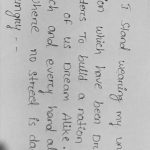 I Stand wearing my un
on which have been Dr
ders To build a nation
of us Dream Alike.
ch and every hand a
where no street is da
hungry :-